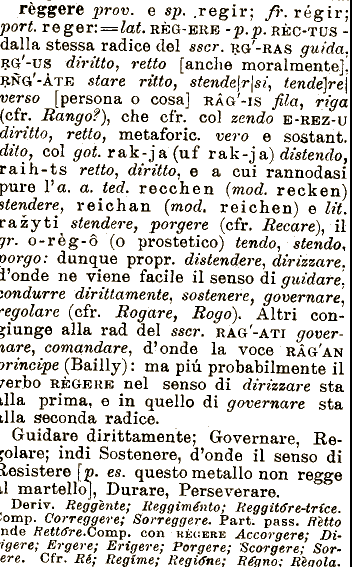 règgere prov. e sp. regir; fr. régir;
port. reger:=lat. RÈG-ERE - p.p. RÈC-TUS -
dalla stessa radice del sscr. ṚG'-RAS guida,
ṚG'-US diritto, retto [anche moralmente],
ṚÑG'-ÂTE stare ritto, stende[r]si, tende[re]
verso [persona o cosa] RÂG'-IS fila, riga
(cfr. Rango?), che cfr. col zendo E-REZ-U
diritto, retto, metaforic. vero e sostant.
dito, col got. rak-ja (uf rak-ja) distendo,
raih-ts retto, diritto, e a cui rannodasi
pure l'a. a. ted. recchen (mod. recken)
stendere, reichan (mod. reichen) e lit.
ražyti stendere, porgere (cfr. Recare), il
gr. o-règ-ô (o prostetico) tendo, stendo,
porgo: dunque propr. distendere, dirizzare,
d'onde ne viene facile il senso di guidare,
condurre dirittamente, sostenere, governare,
regolare (cfr. Rogare, Rogo). Altri con-
giunge alla rad del sscr. RAG'-ATI gover-
nare, comandare, d'onde la voce RÂG'AN
principe (Bailly): ma piú probabilmente il
verbo RÈGERE nel senso di dirizzare sta
alla prima, e in quello di governare sta
alla seconda radice.
Guidare dirittamente; Governare, Re-
golare; indi Sostenere, d'onde il senso di
Resistere [p. es. questo metallo non regge
al martello], Durare, Perseverare.
Deriv. Reggènte; Reggiménto; Reggitóre-trice.
Comp. Correggere; Sorreggere. Part. pass. Rètto
onde Rettóre. Comp. con RÈGERE Accorgere; Di-
rigere; Ergere; Erigere; Porgere; Scorgere; Sor-
gere. Cfr. Ré; Regime; Regióne; Régno; Règola.